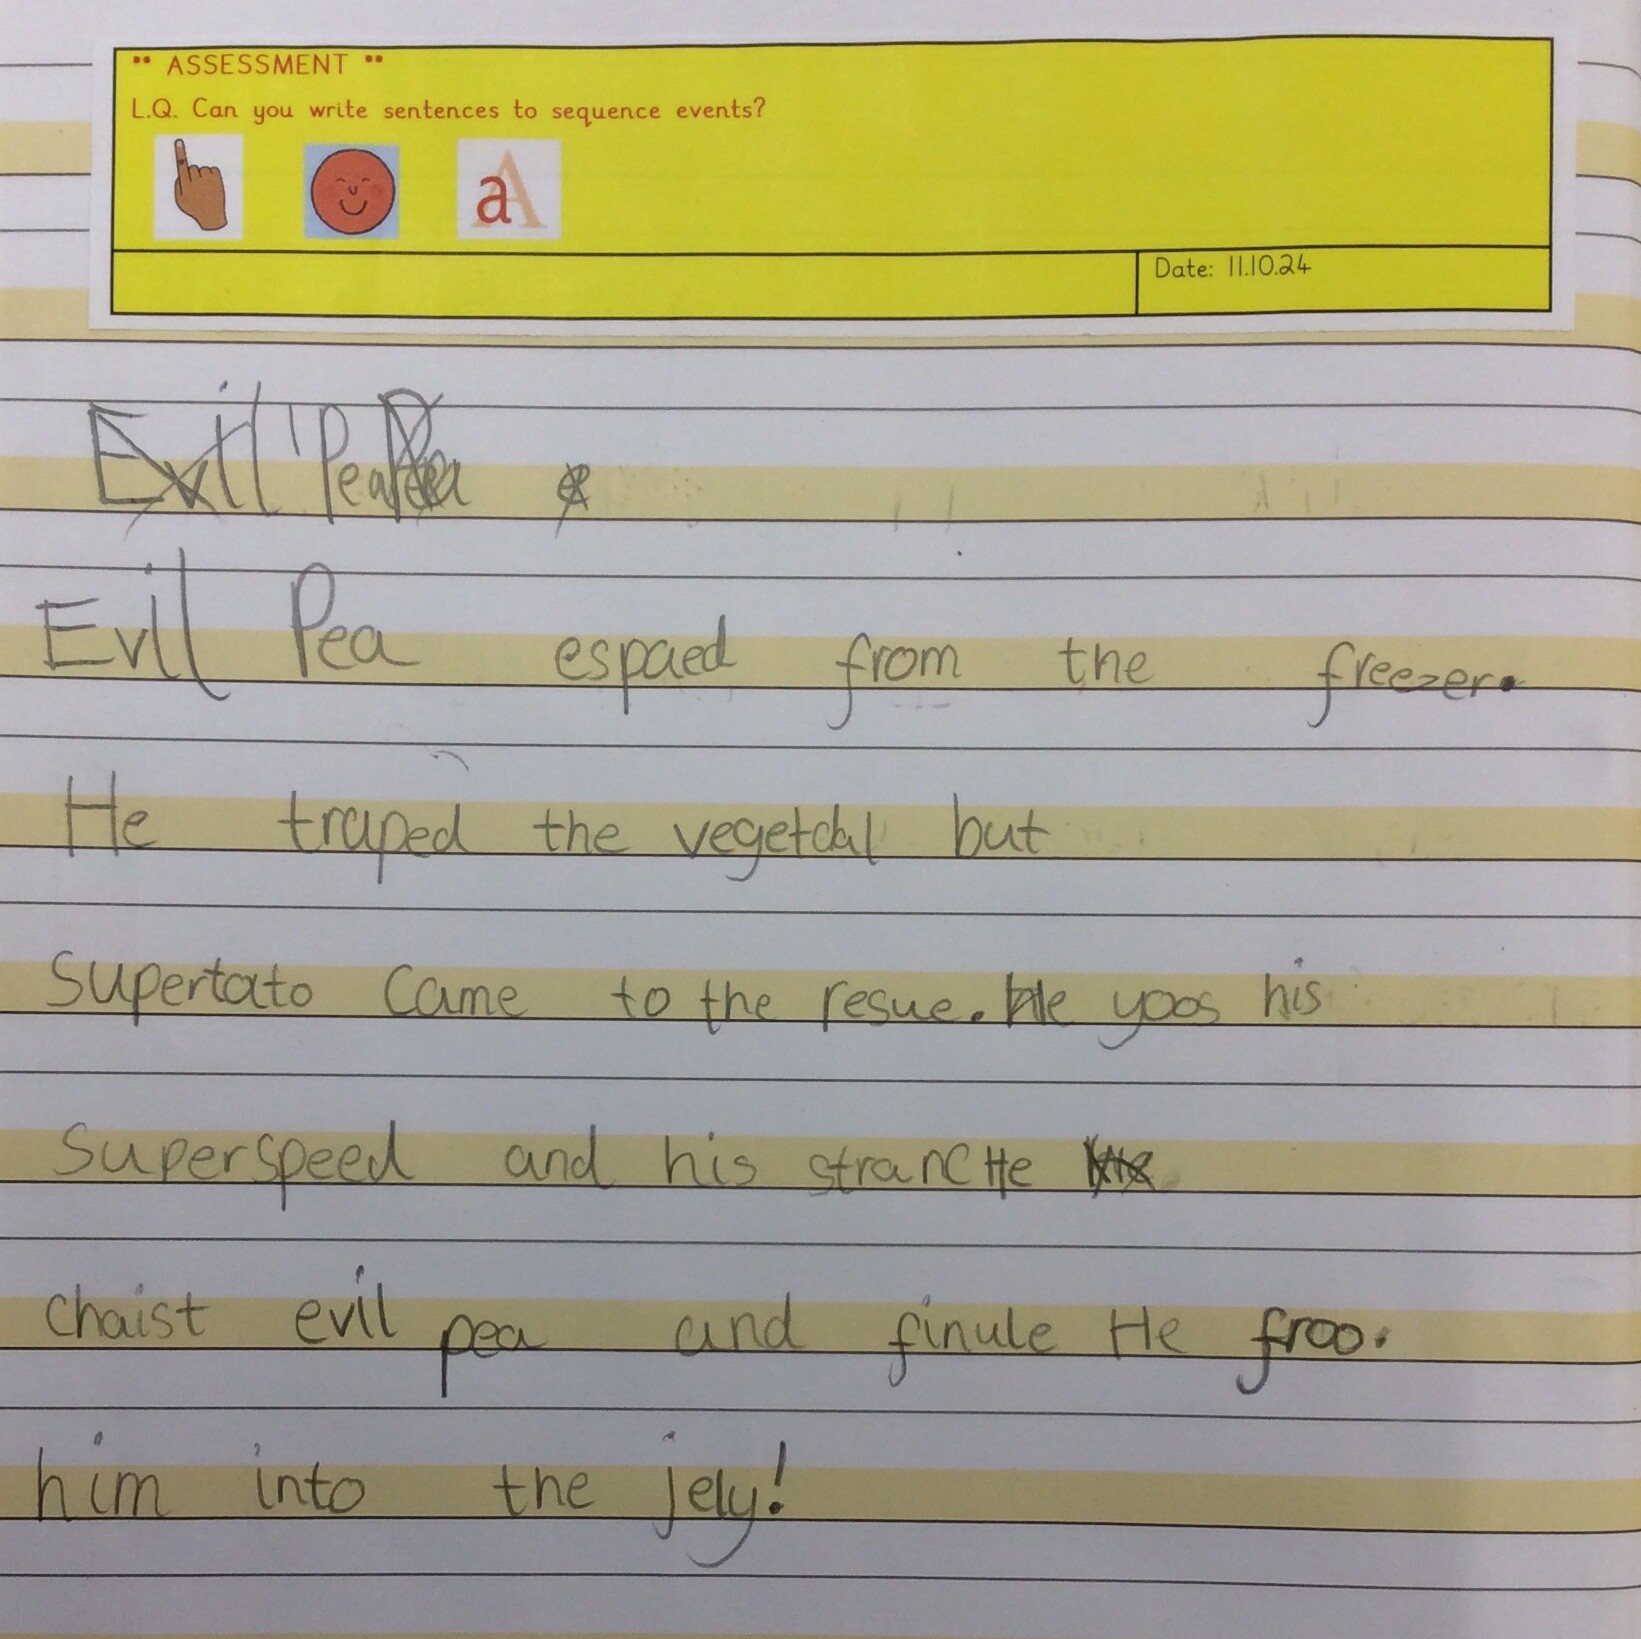 •• ASSESSMENT ••
L.Q. Can you write sentences to sequence events?
aA
Date: 11.10.24
Evil Pea
Evil Pea espaed from the freezer.
He traped the vegetabl but
Supertato came to the resue. He yoos his
Superspeed and his strancHe
chaist evil pea and finule He froo.
him into the jely!